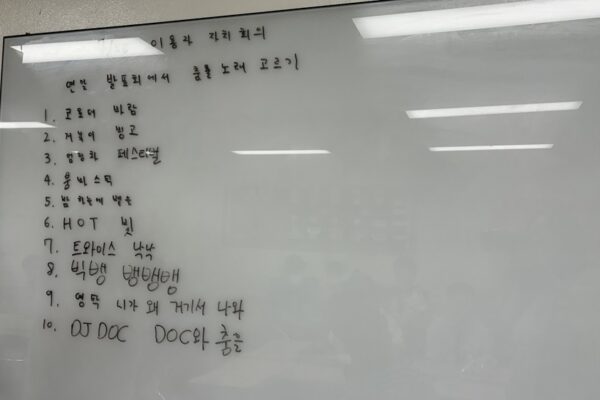 이용자 자치 회의
연말 발표회에서 춤출 노래 고르기
1. 코요태 바람
2. 거북이 빙고
3. 엄정화 페스티벌
4. 붐비스틱
5. 밤하늘에 별을
6. HOT 빛
7. 트와이스 낙낙
8. 빅뱅 뱅뱅뱅
9. 영탁 니가 왜 거기서 나와
10. DJ DOC DOC와 춤을